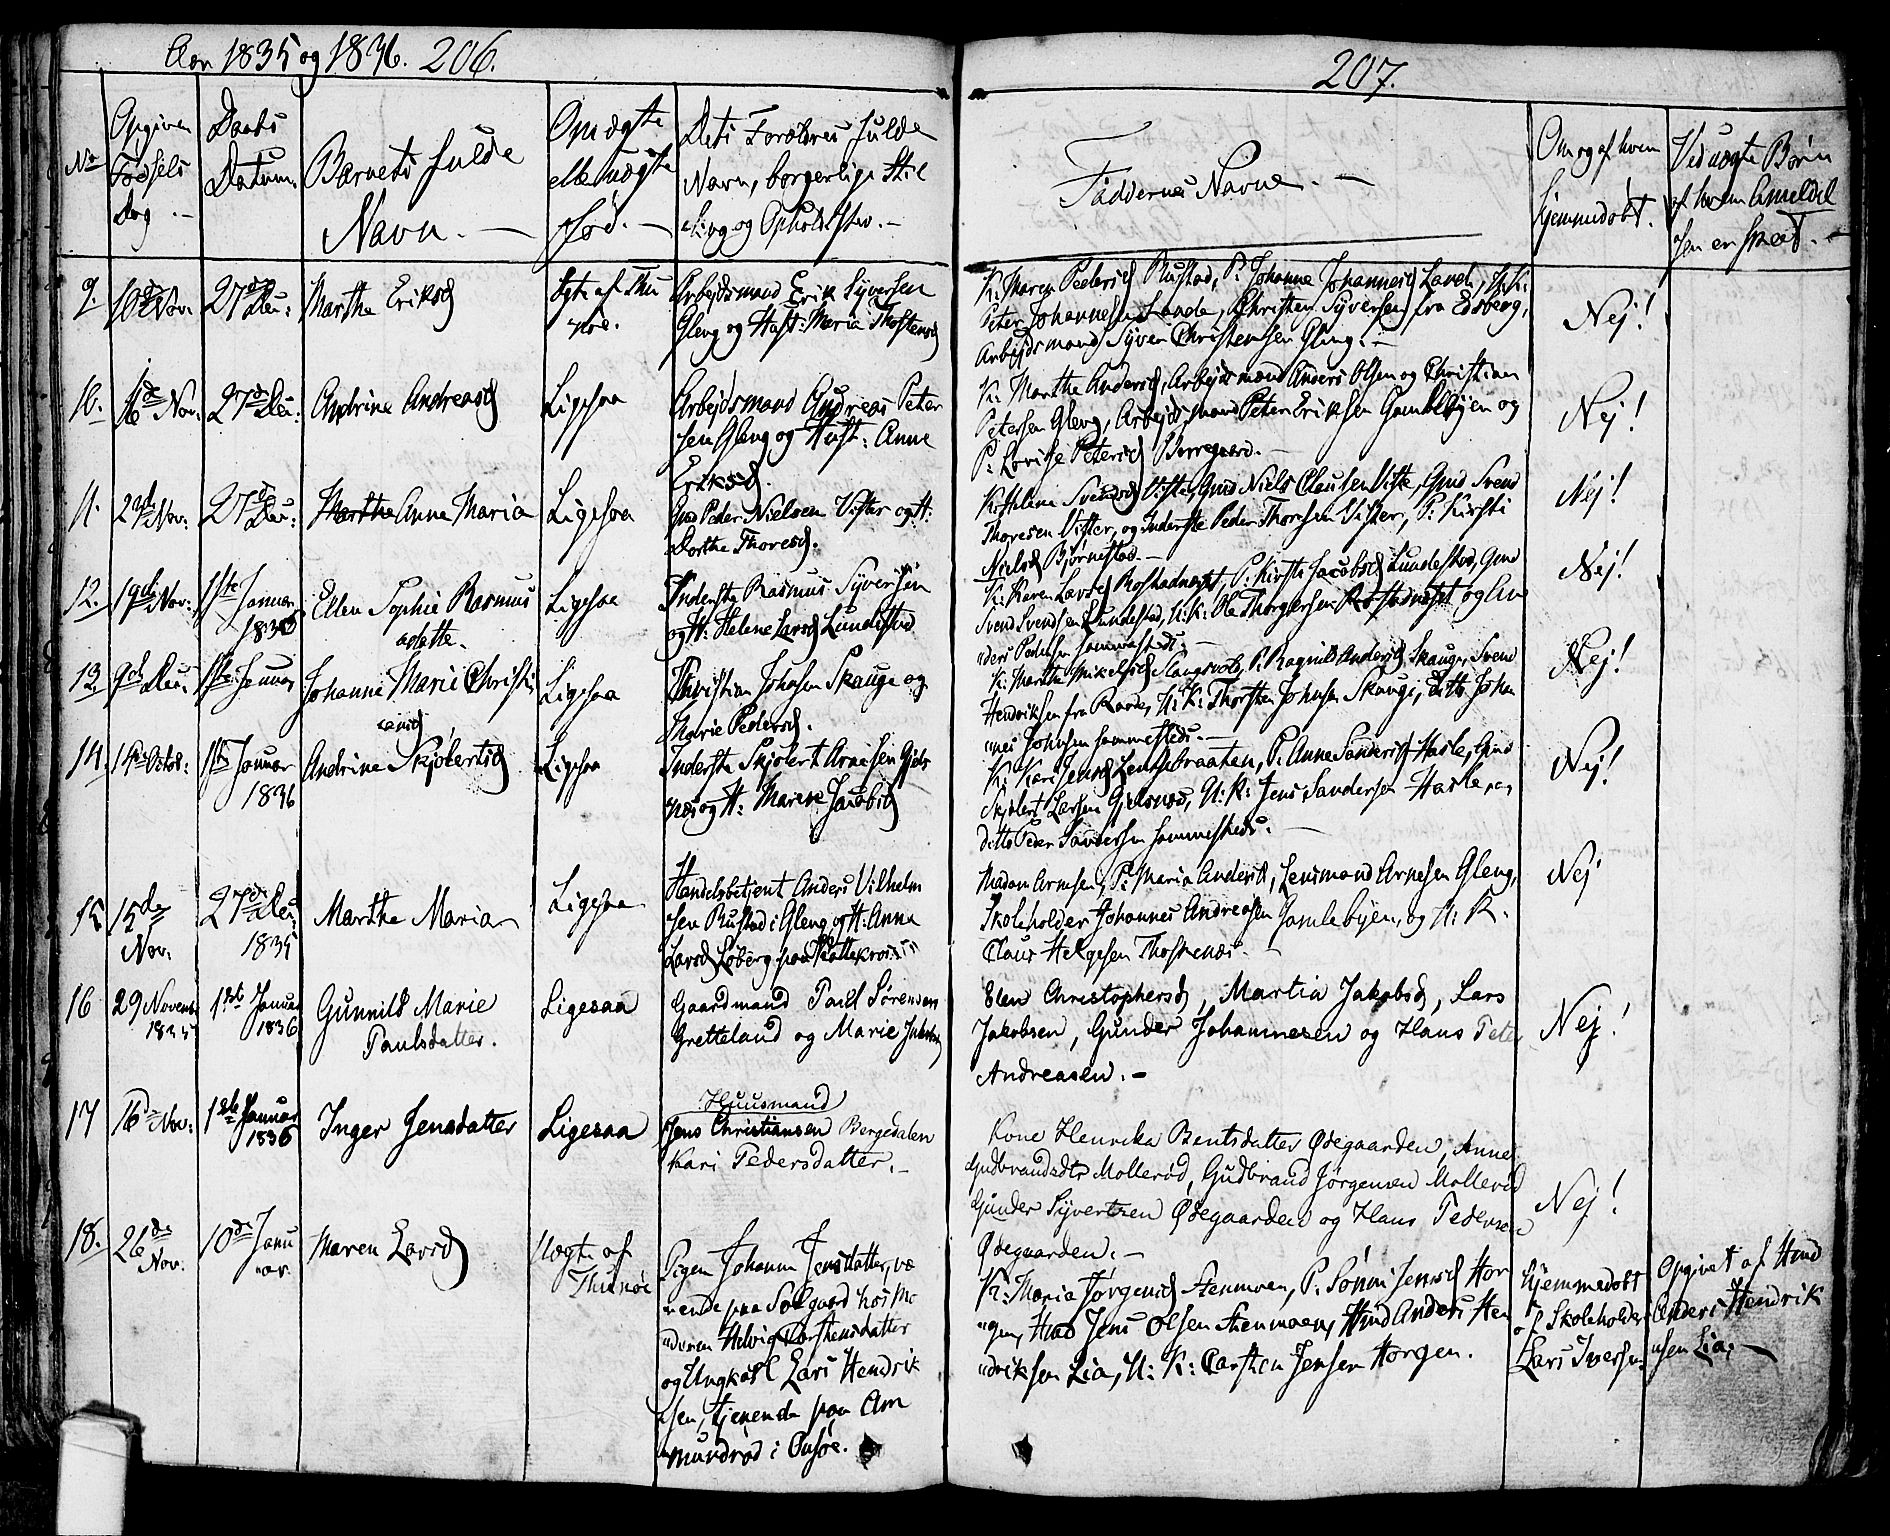 Aar 1835 og 1836. 206.
No
Opgiven
Fødsels
Dag.
Daabs
Datum.
Barnets fulde
Navn. —
Om ægte
eller uægte
fød. —
Dets Forældres fulde
Navn, borgerlige Stil
ling og Opholdssted. —
9.
10de Nov:
27de Dec:
Marthe Eriksd
Ægte af 
Arbejdsmand Erik Syversen
Gleng og Hust: Maria Thostensd
10.
16de Nov:
27de Dec:
Andrine Andreasd
Ligesaa
Arbejdsmand Andreas Peter
sen Gleng og Hust: Anne
Eriksd.
11.
23de Nov:
27de Dec:
Marthe Anne Maria
Ligesaa
Gmd Peder Nielsen Vister og H:
Dorthe Thoresd.
12.
19de Nov:
1ste Januar
1836
Ellen Sophie Rasmus
datte.
Ligesaa
Inderste Rasmus Syversen
og H: Helene Larsd Lundestad
13
9de Dec:
1ste Januar
Johanne Marie Christi
ansd
Ligesaa
Christian Johnsen Skauge og
Marie Pedersd.
14.
1ste Octob:
1ste Januar
1836
Andrine Skjølertsd
Ligesaa
Inderste Skjølert Arnesen Gjels
næs og H: Maren Jacobsd
15
15de
Nov:
27de Dec:
1835
Marthe Maria
Ligesaa
Handelsbetjent Anders Vilhelm
sen Rustad i Gleng og H: Anna
Larsd Løberg paa
16
29 Novemb
1835
1ste Januar
1836
Gunnild Marie
Paulsdatter.
Ligesaa
Gaardmand Paul Sørensen
Gretteland og Marie
17
16de Nov:
1ste Januar
1836
Inger Jensdatter
Ligesaa
Huusmand
Jens Christiansen Bergedalen
Kari Pedersdatter. —
18.
26de
Nov.
10de Janu
ar.
Maren Larsd
Uægte af
Pigen Johanne Jensdatter, væ
rende paa Solgaard hos Mo
deren Helvig Torstensdatter
og Ungkarl Lars Hendrik
sen, tjenende paa Am
mundrød i Onsøe.
207.
Faddernes Navne. —
Om og af hvem
hjemmedøbt.
Ved uægte Børn
af hvem Anmeldel
sen er skeet. —
K: Maren Pedersd Rustad, P: Johanne Johannesd Lande, U: K:
Peter Johannesen Lande, Christen Syversen fra Edsberg,
Arbejdsmand Syver Christensen Gleng. —
Nej!
K: Marthe Andersd, Arbejdsmænd Anders Olsen og Christian
Petersen Gleng, Arbejdsmand Peter Eriksen Gamlebyen og
P: Lovise Petersd Borregaard. —
Nej!
K: Helene Svendsd Viste, Gmd Niels Clausen Viste, Gmd Svend
Thoresen Vister, og Inderste Peder Thoresen Vister, P: Kirsti
Nielsd Bjørnestad. —
Nej!
K: Karen Larsd Rostadnæset, P: Kirsti Jacobsd Lundestad, Gmd
Svend Svendsen Lundestad, U: K: Ole Thorgersen Rostadnæset og An
ders Pedersen sammesteds. —
Nej!
K: Marthe Mikelsd Slangsvold, P: Ragnild Andersd Skauge, Svend
Hendriksen fra Raade, U: K: Thorsten Johnsen Skauge, ditto Johan
nes Johnsen sammesteds. —
Nej!
K: Kari Jensd Lensebraaten, P: Anne Sandersd Hasle, Gmd
Skjølert Larsen Gjelsnæs, U: K: Jens Sandersen Hasle, og
ditto Peder Sandersen sammesteds. —
Nej!
Madam Arnesen, P: Maria Andersd, Lensmand Arnesen Gleng,
Skoleholder Johannes Andreasen Gamlebyen, og U: K.
Claus Helgesen Thospenæs. —
Nej
Elen Christophersd, Martia Jakobsd, Lars
Jakobsen, Gunder Johannesen og Hans Peter
Andreasen. —
Nej!
Kone Henrika Bentsdatter Ødegaarden, Anne
Gudbrandsdtr Mollerød, Gudbrand Jørgensen Mollerød
Gunder Syvertsen Ødegaarden og Hans Pedersen
Ødegaarden. —
Nej!
K: Maria Jørgensd Stenmoen, P. Sønni Jensd Hor
gen, Hmd Jens Olsen Stenmoen, Hmd Anders Hen
driksen Lia, U: K: Carsten Jensen Horgen.
Hjemmedøbt
af Skoleholder
Lars Iversen
Opgivet af Hmd
Anders Hendrik
sen Lia. —